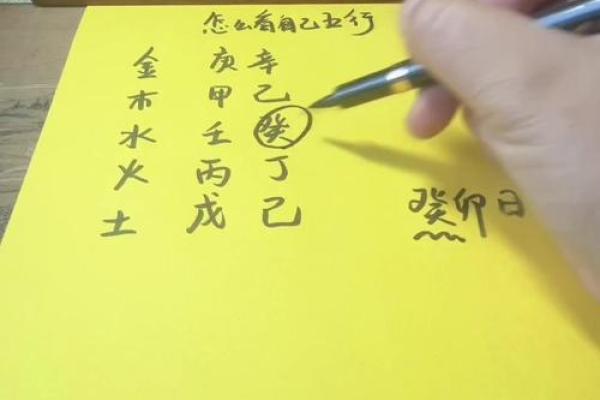 怎么看自己五行
金 庚 辛
木 甲 乙
水 壬 癸
火 丙 丁
土 戊 己
癸卯日